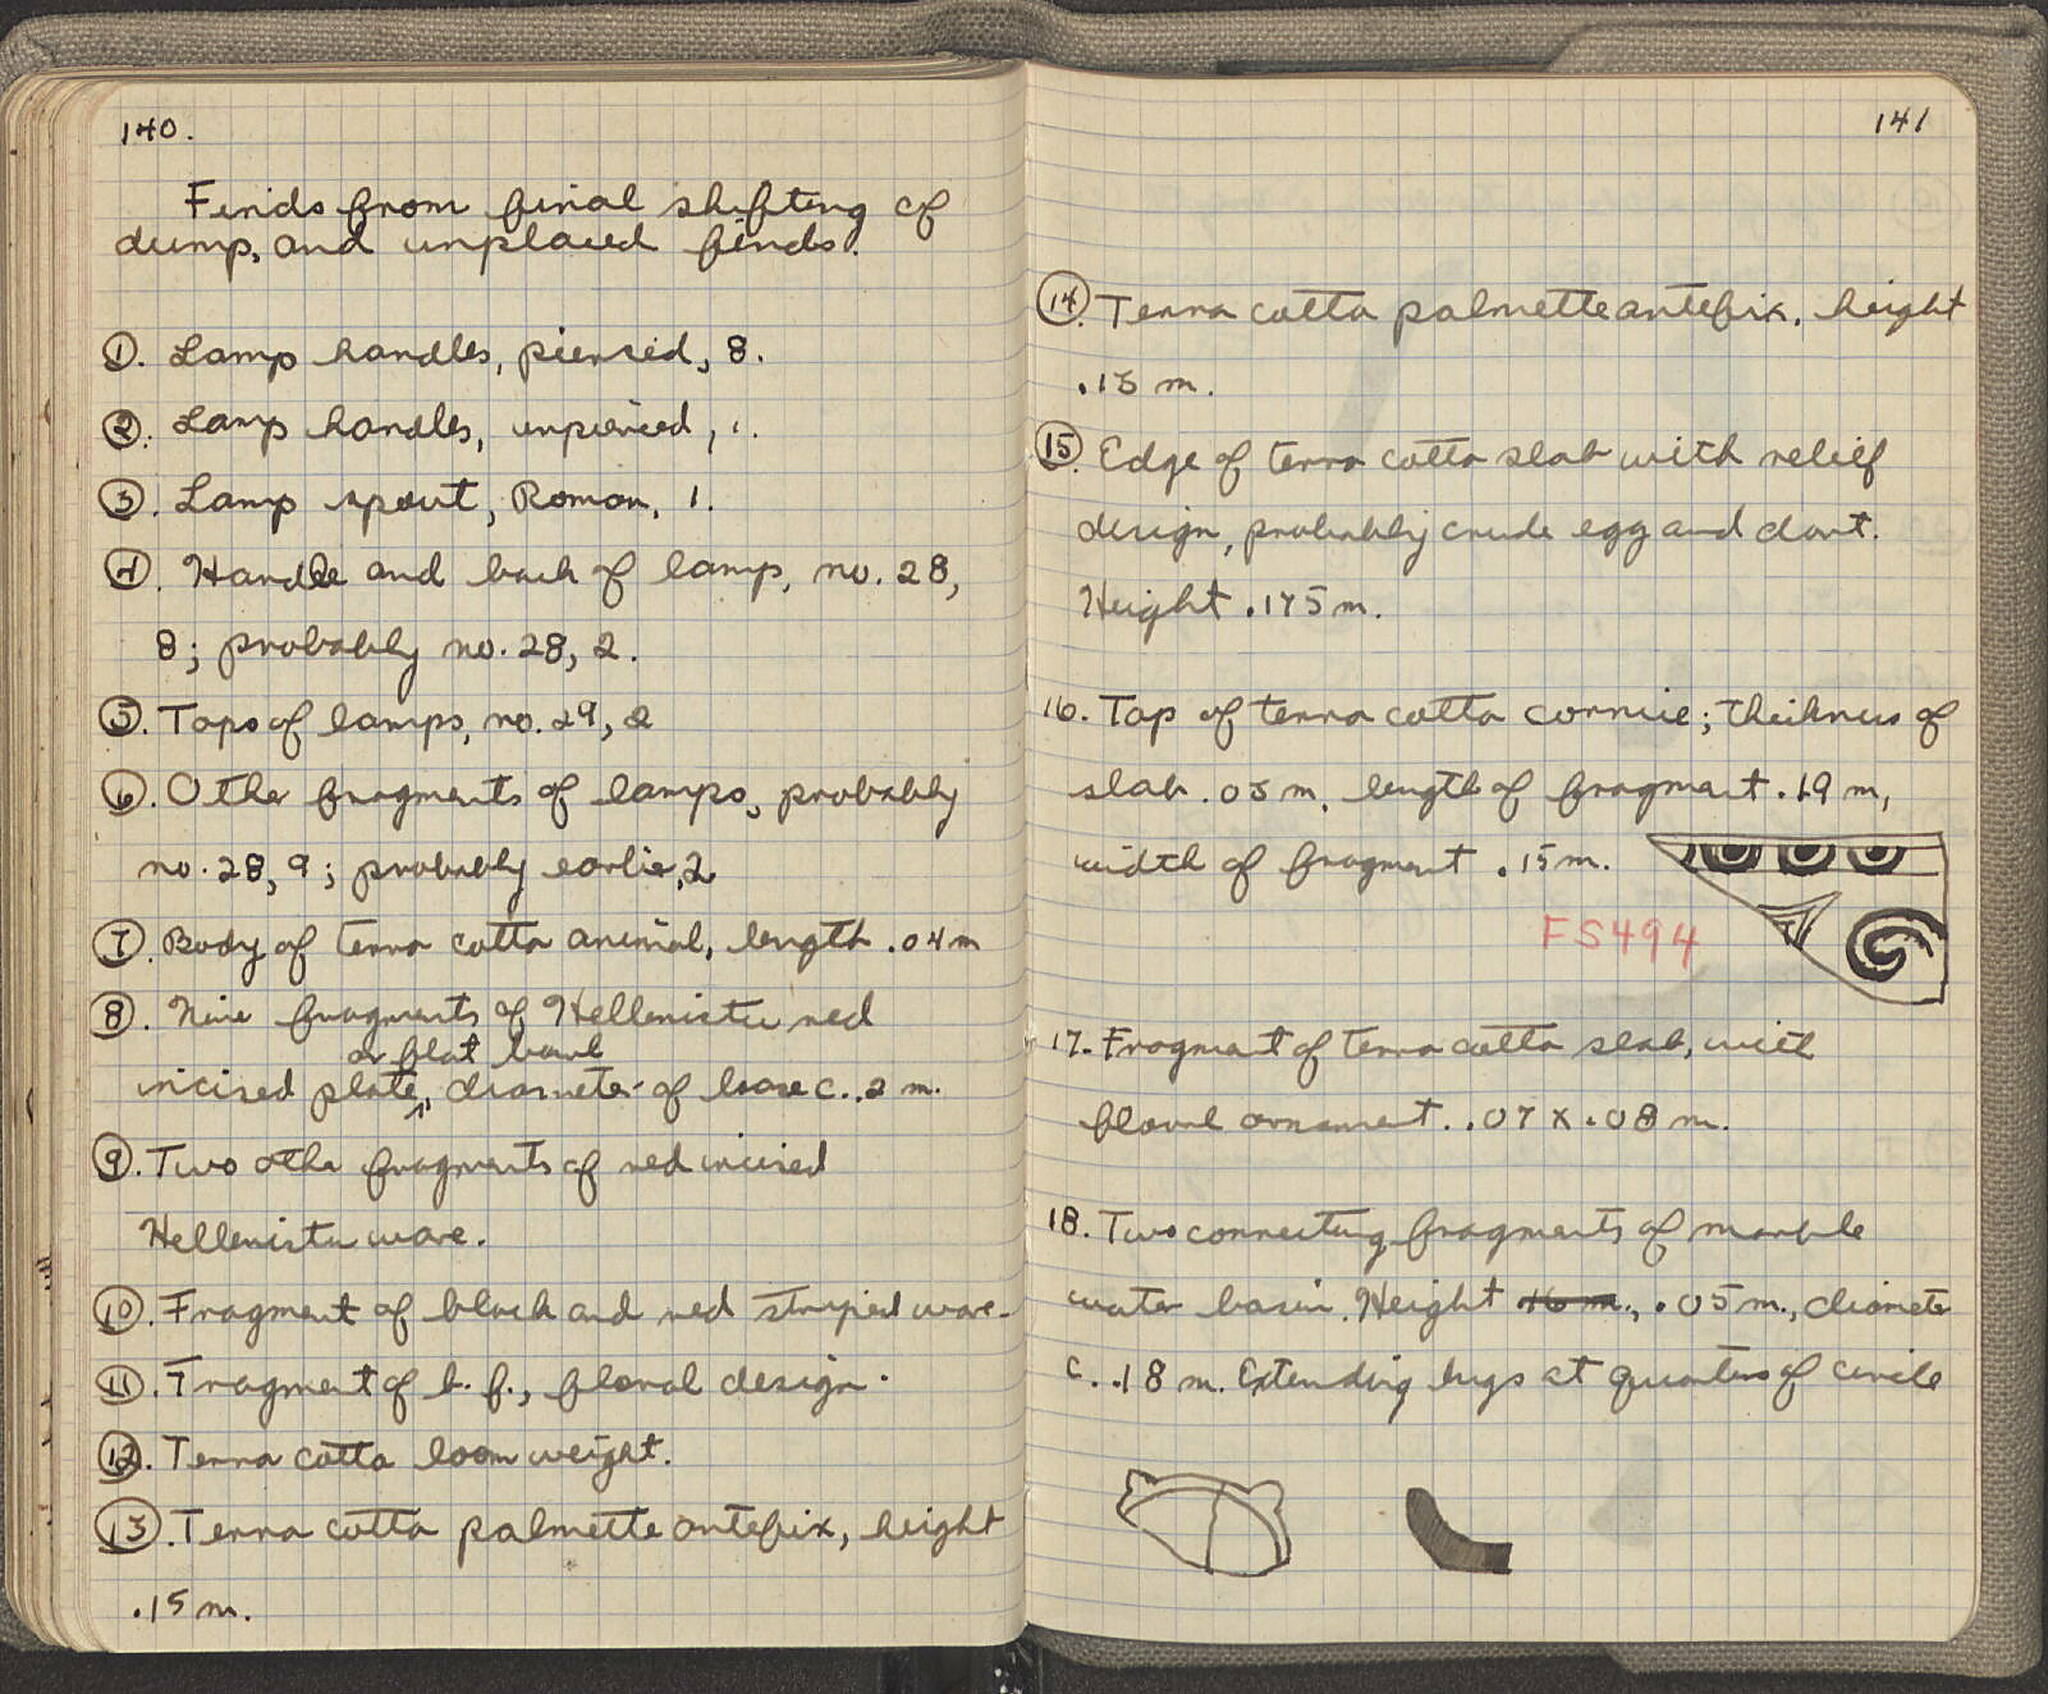 140.
Finds from final shifting of
dump, and unplaced finds.
1. Lamp handles, pierced, 8.
2. Lamp handles, unpierced, 1.
3. Lamp spout, Roman, 1.
4. Handle and back of lamp, no. 28,
8; probably no. 28, 2.
5. Tops of lamps, no. 29, 2
6. Other fragments of lamps, probably
no. 28, 9; probably earlier, 2
7. Body of terra cotta animal, length .04 m
8. Nine fragments of Hellenistic red
or flat bowl
incised plate, diameter of base c. .2 m.
9. Two other fragments of red incised
Hellenistic ware.
10. Fragment of black and red striped ware.
11. Fragment of b. f., floral design.
12. Terra cotta loom weight.
13. Terra cotta palmette antefix, height
.15 m.
141
14. Terra cotta palmette antefix, height
m.
15. Edge of terra cotta slab with relief
design, probably crude egg and dart.
Height .175 m.
16. Top of terra cotta cornice; thickness of
slab m, length of fragment .19 m,
width of fragment .15 m.
FS494
17. Fragment of terra cotta slab, with
floral ornament. .07 x .08 m.
18. Two connecting fragments of marble
water basin. Height .16 m., .05 m., diameter
c. .18 m. Extending lugs at quarters of circle